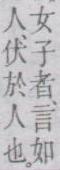 女子者、言如
人、伏於人也。